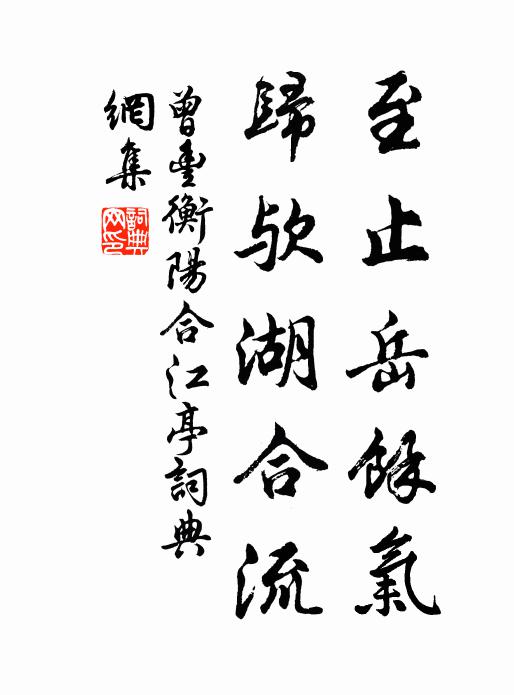 至止岳餘氣
歸欤湖合流
曾豊衡陽合江亭詞典
網集
詞典网印